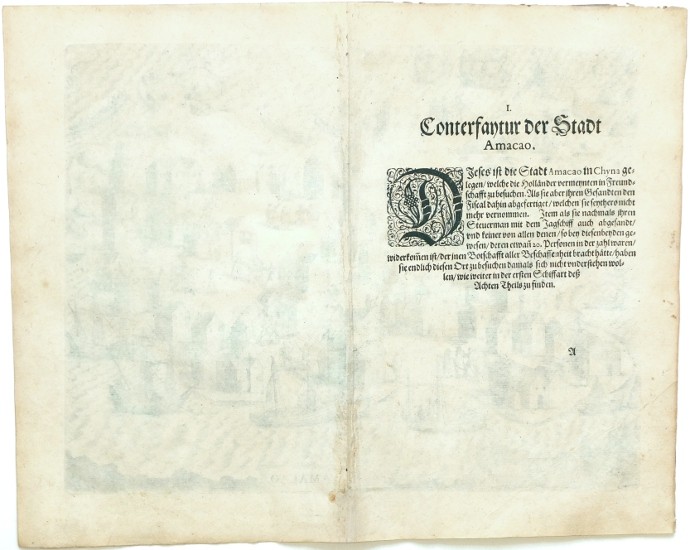 I.
Conterfaytur der Stadt
Amacao.
DIeses ist die Stadt Amacao in Chyna ge-
legen/ welche die Holländer vermeynten in Freund-
schafft zu besuchen. Als sie aber ihren Gesandten den
Fiscal dahin abgefertiget/ welchen sie seythero nicht
mehr vernommen. Item als sie nachmals ihren
Steuerman mit dem Jagschiff auch abgesandt/
vnd keiner von allen denen/ so bey diesen beyden ge-
wesen/ deren etwañ 20. Personen in der zahl waren/
widerkom̃en ist/ der jnen Botschafft aller Beschaffenheit bracht hätte/ haben
sie endlich diesen Ort zu besuchen damals sich nicht vnderstehen wol-
len/ wie weiter in der ersten Schiffart deß
Achten Theils zu finden.
A